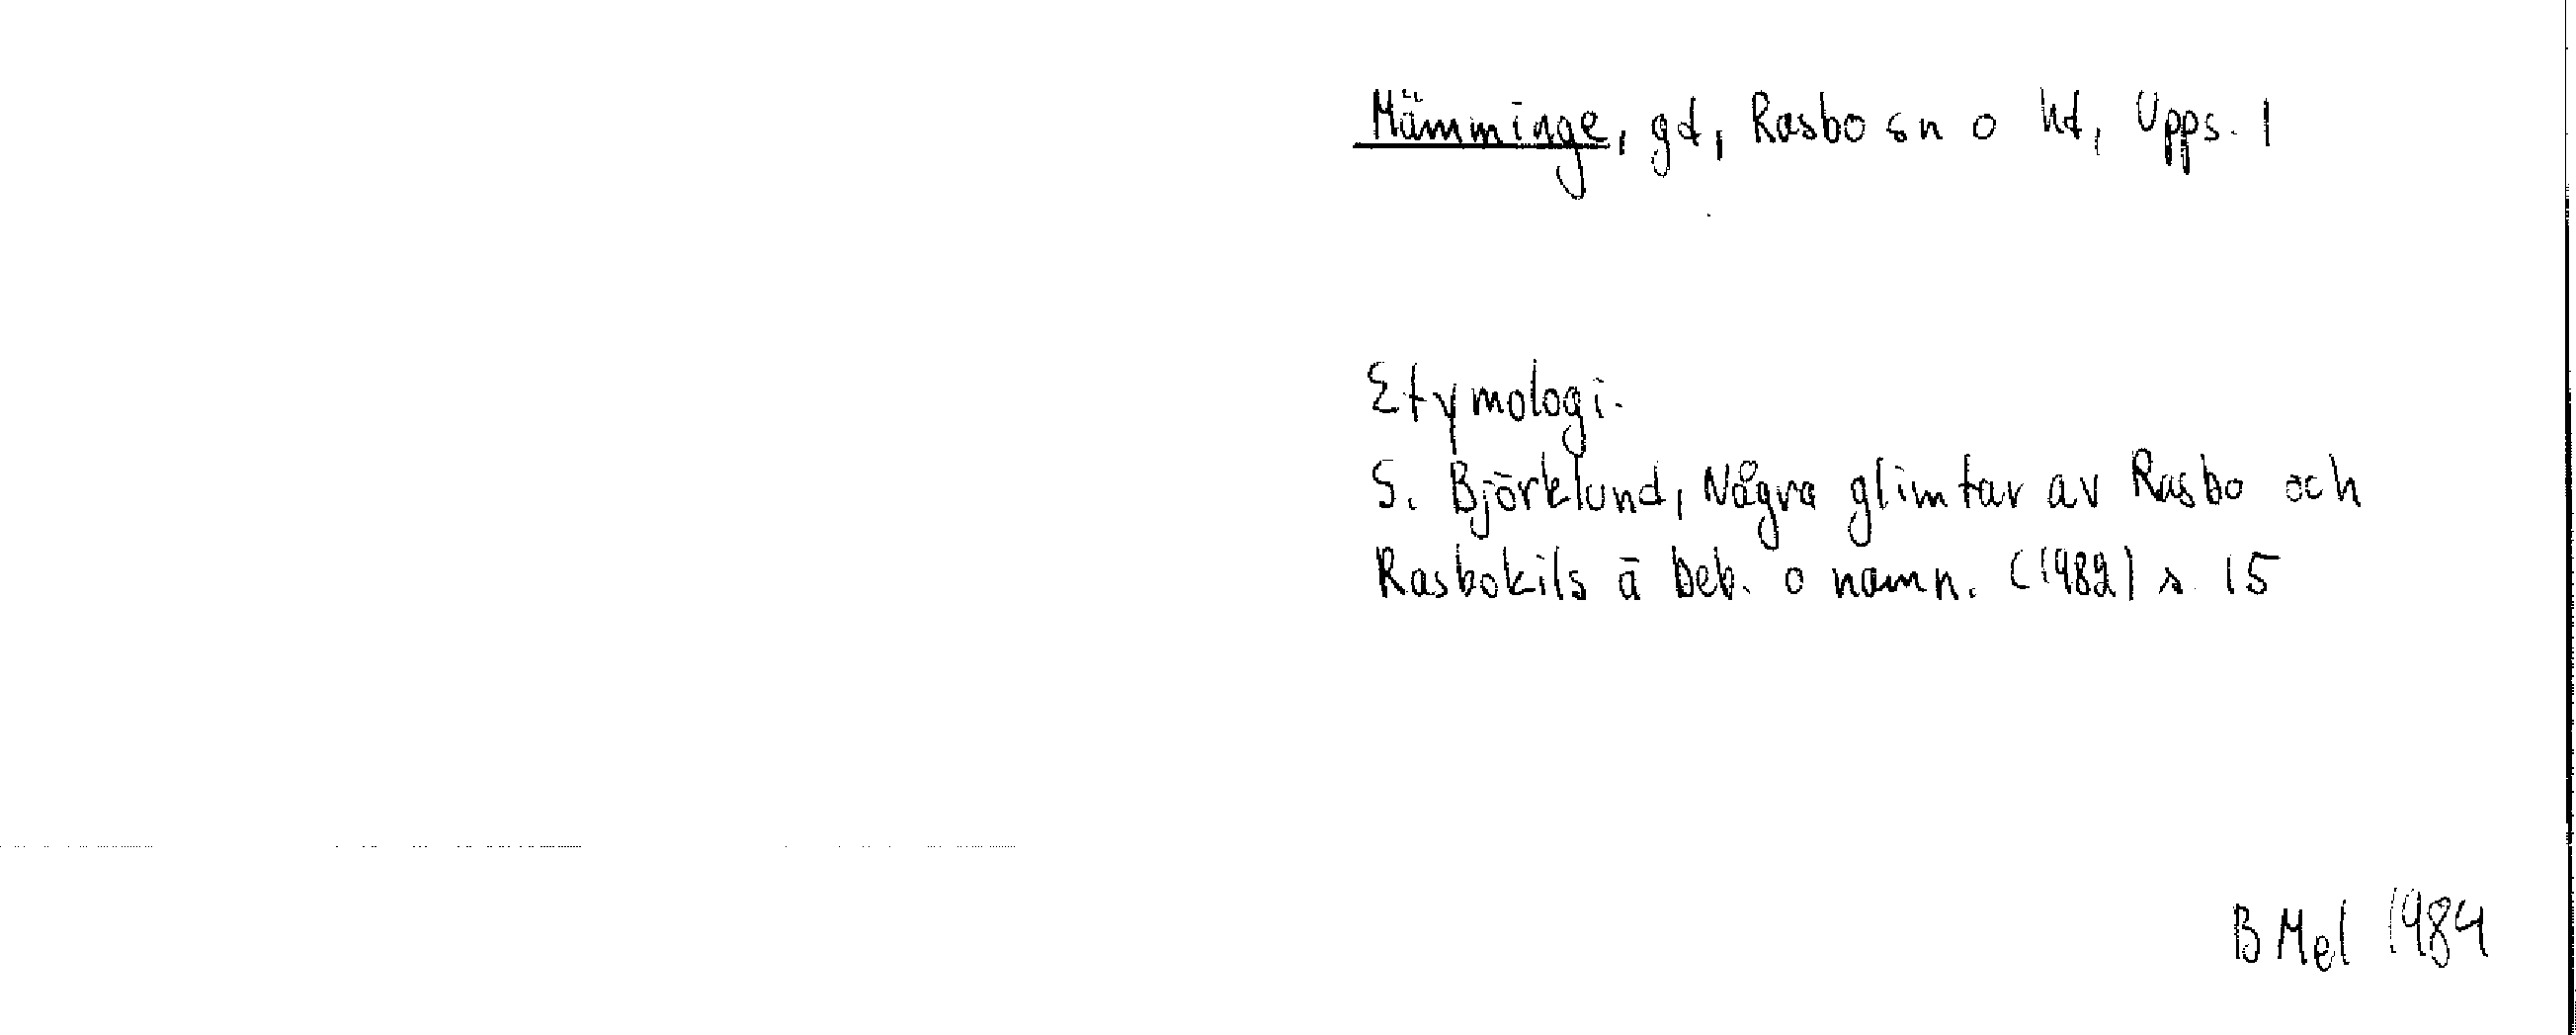 Mämminge, gd, Rasbo sn o hd, Upps. l
Etymologi.
S. Björklund, Några glimtar av Rasbo och
Rasbokils ä beb. o namn. (1982) s. 15
B Mel 1984